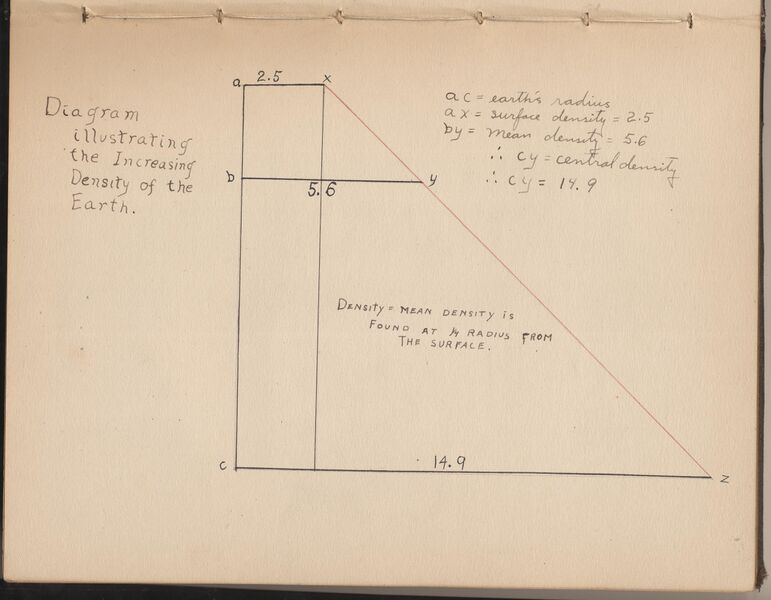 Diagram
illustrating
the Increasing
Density of the
Earth.
a 2.5 x
ac = earth's radius
ax = surface density = 2.5
by = mean density = 5.6
∴ cy = central density
∴ cy = 14.9
b 5.6 y
Density = mean density is
found at 1/4 radius from
the surface.
c 14.9 z